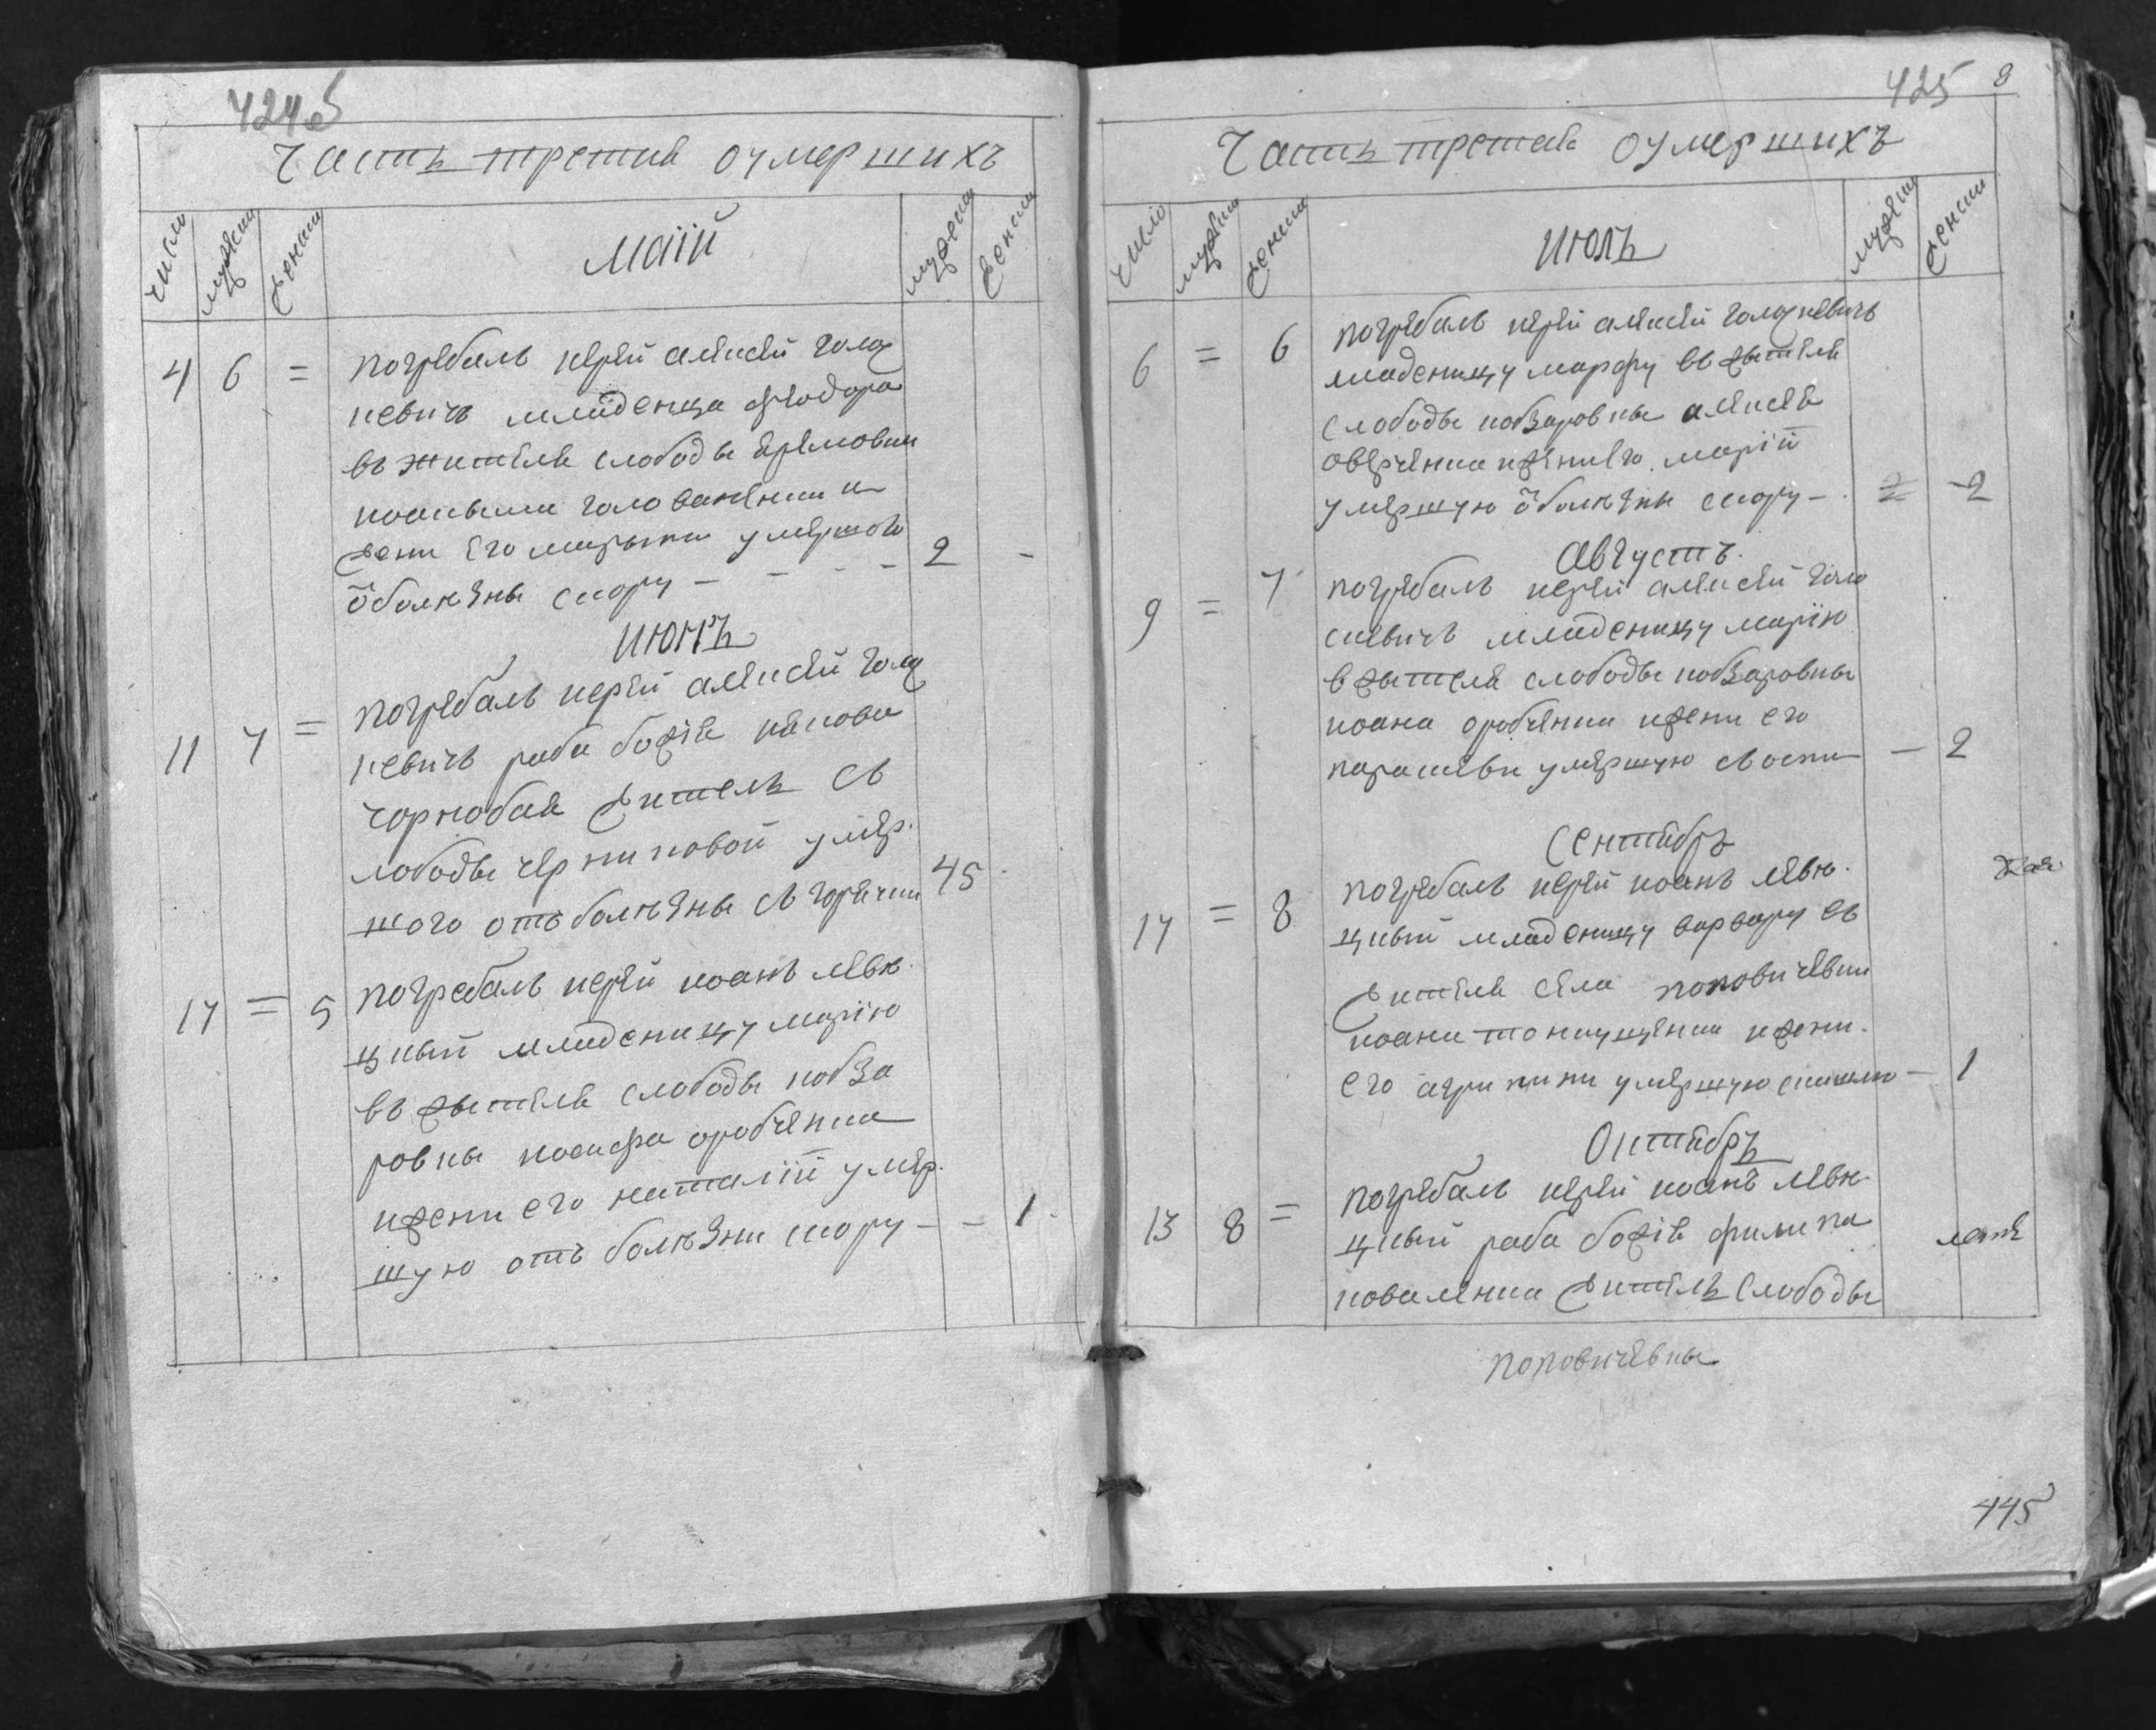 424 об
Часть третия оумерших
число
мужеск
женск
маій
мужеск
женск
4 6 = погребалъ иерей алексей голов
кевичъ младенца феодора
въ жителя слободы
голованенка и
жени его умершого
ѿ болезны 2 -
июнь
11 7 = погребалъ иерей алексей голов
кевичъ раба божія якова
чорнобая житель сл
лободы черниповой умер.
шого отъ болезны горячки 45
17 = 5 погребалъ иерей иоанъ левн.
цкый младеницу марїю
въ жытеля слободы кобза
ровкы иосифа оробченка
и жени его наталїй умер.
шую отъ болезни - - 1
425 8
Часть третая оумерших
число
мужеск
женск
июль
мужеск
женск
6 = 6 погребалъ иерей алексей головкевичъ
младеницу марфу въ жытеля
слободы кобзаровкы алексея
оверченка и жени его марїй
умершую ѿ болезны - 2 -2
Августъ
9 = 7 погребалъ иерей алексей голо
кевичъ младеницу марїю
в жытеля слободы кобзаровкы
иоана оробченка и жени его
параскеви умершую - 2
Сентябрь
17 = 8 погребалъ иерей иоанъ левн.
цкый младеницу варвару въ
жителя села поповичевки
иоана и жени.
его агрипини умершую - 1
Октябрь
13 8 = погребалъ иерей иоанъ левн
цкый раба божія филипа
коваленка житель слободы
поповичевкы
445